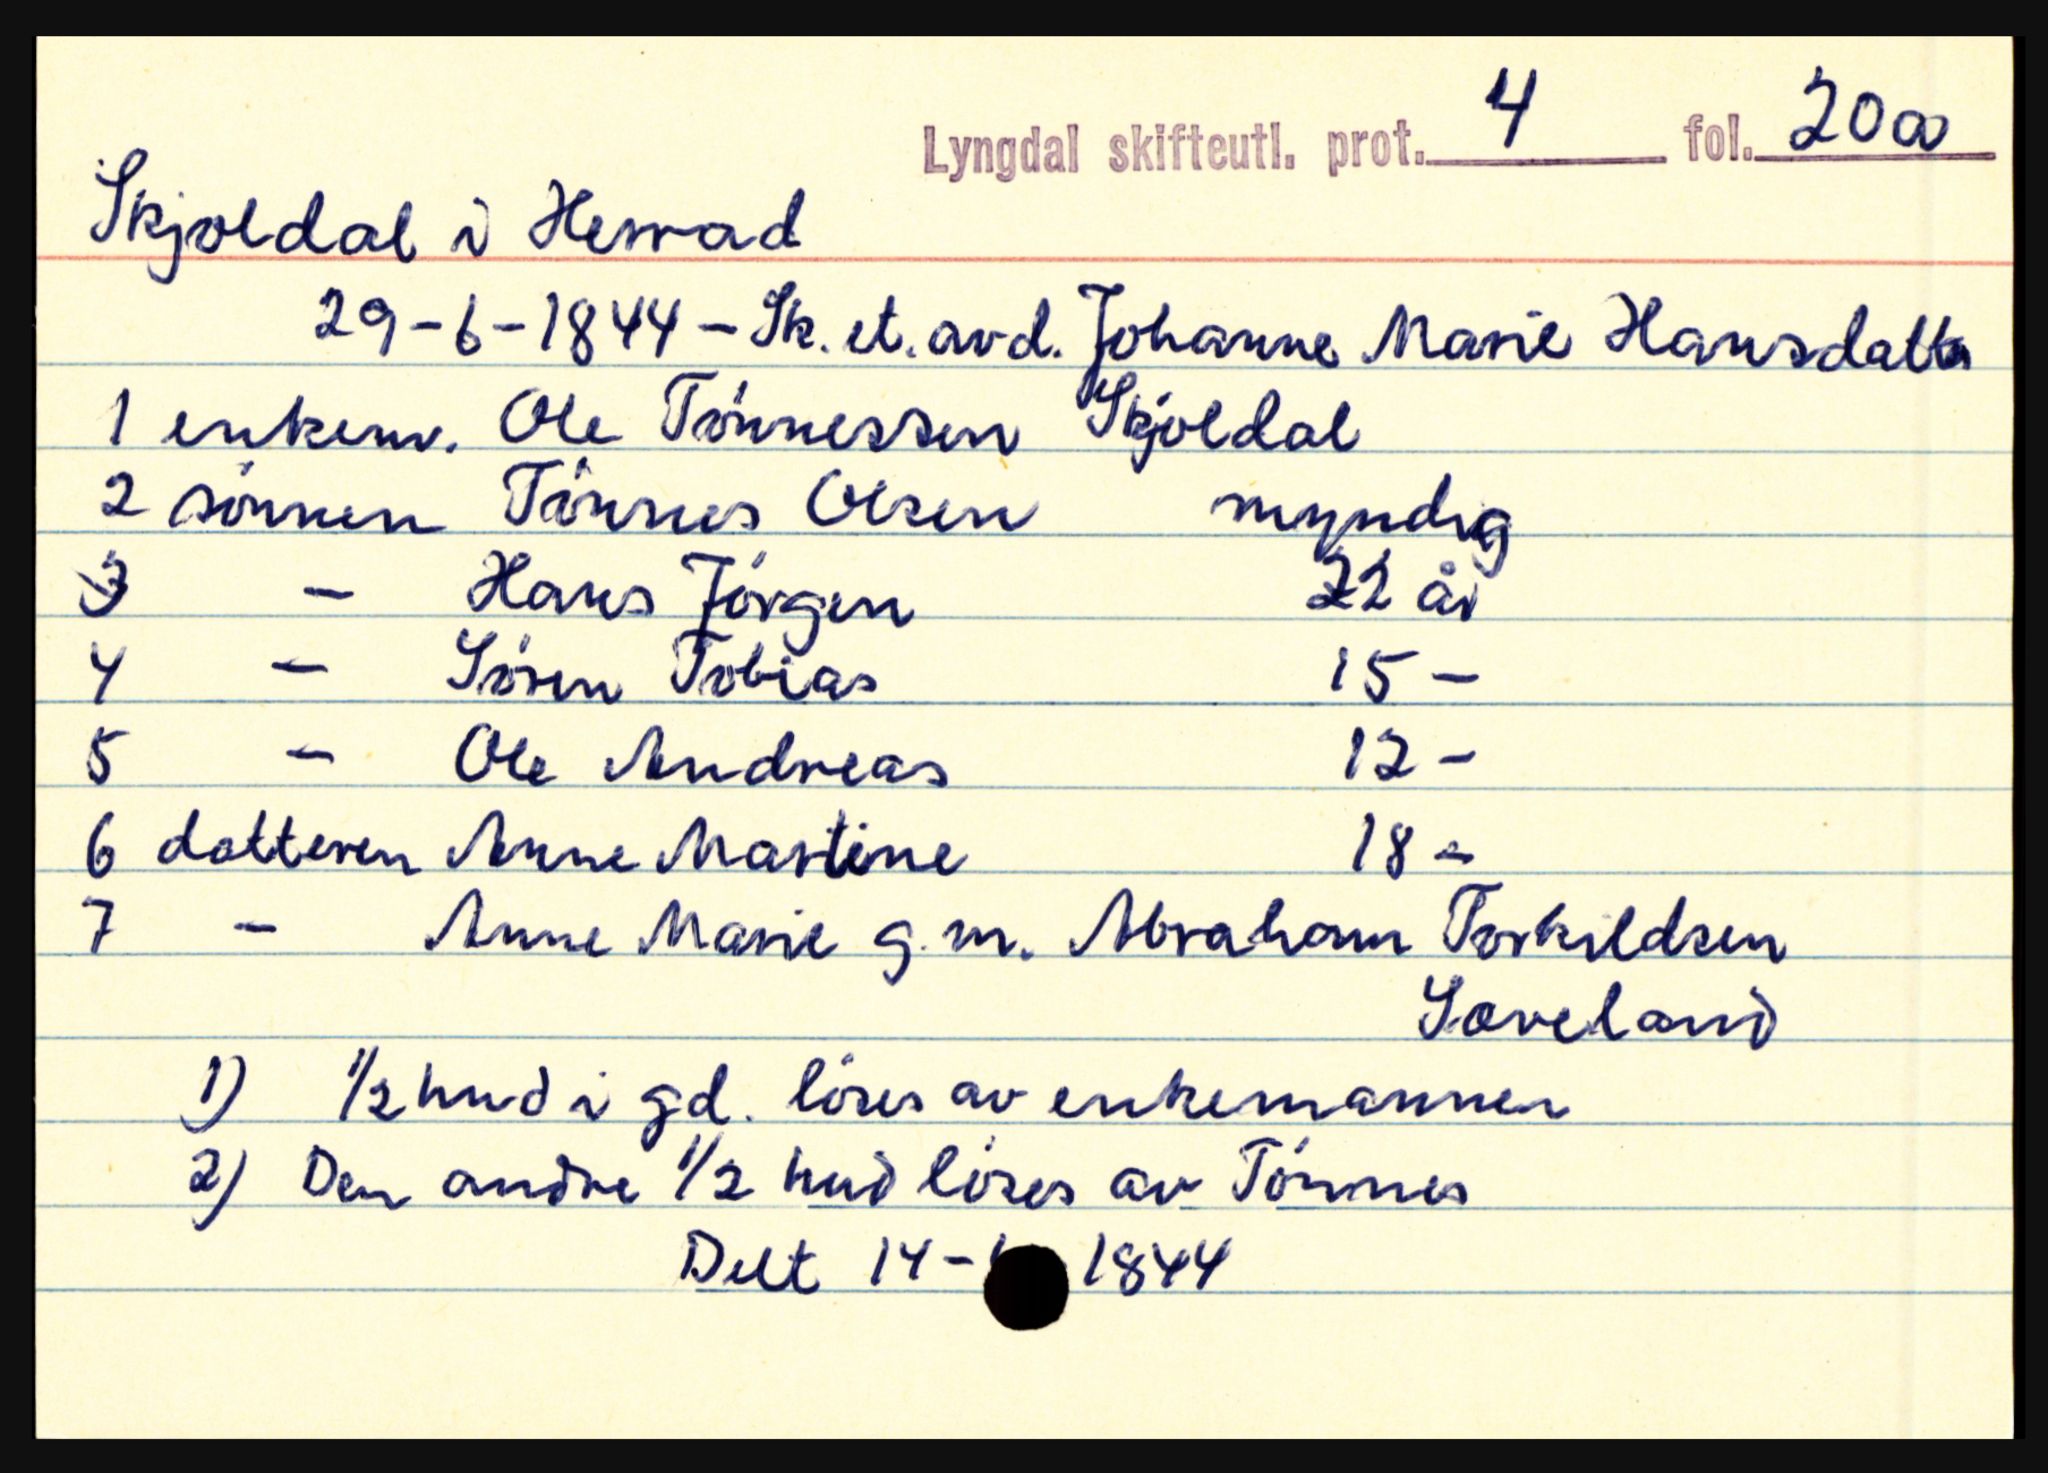 Lyngdal skifteutl. prot. 4 fol. 20
Skjoldal i Herrad
29-6-1844 - Sk. et. avd. Johanne Marie Hansdatter
1 enkem. Ole Tönnessen Skjoldal
2 sönnen Tönnes Olsen myndig
3 - Hans Jörgen 22 år
4 - Sören Tobias 15 -
5 - Ole Andreas 12 -
6 datteren Anne Martine 18 -
7 - Anne Marie g.m. Abraham Torkildsen
Sæveland
1) 1/2 hud i gd. löses av enkemannen
2) Den andre 1/2 hud löses av Tönnes
Delt 14- 1844